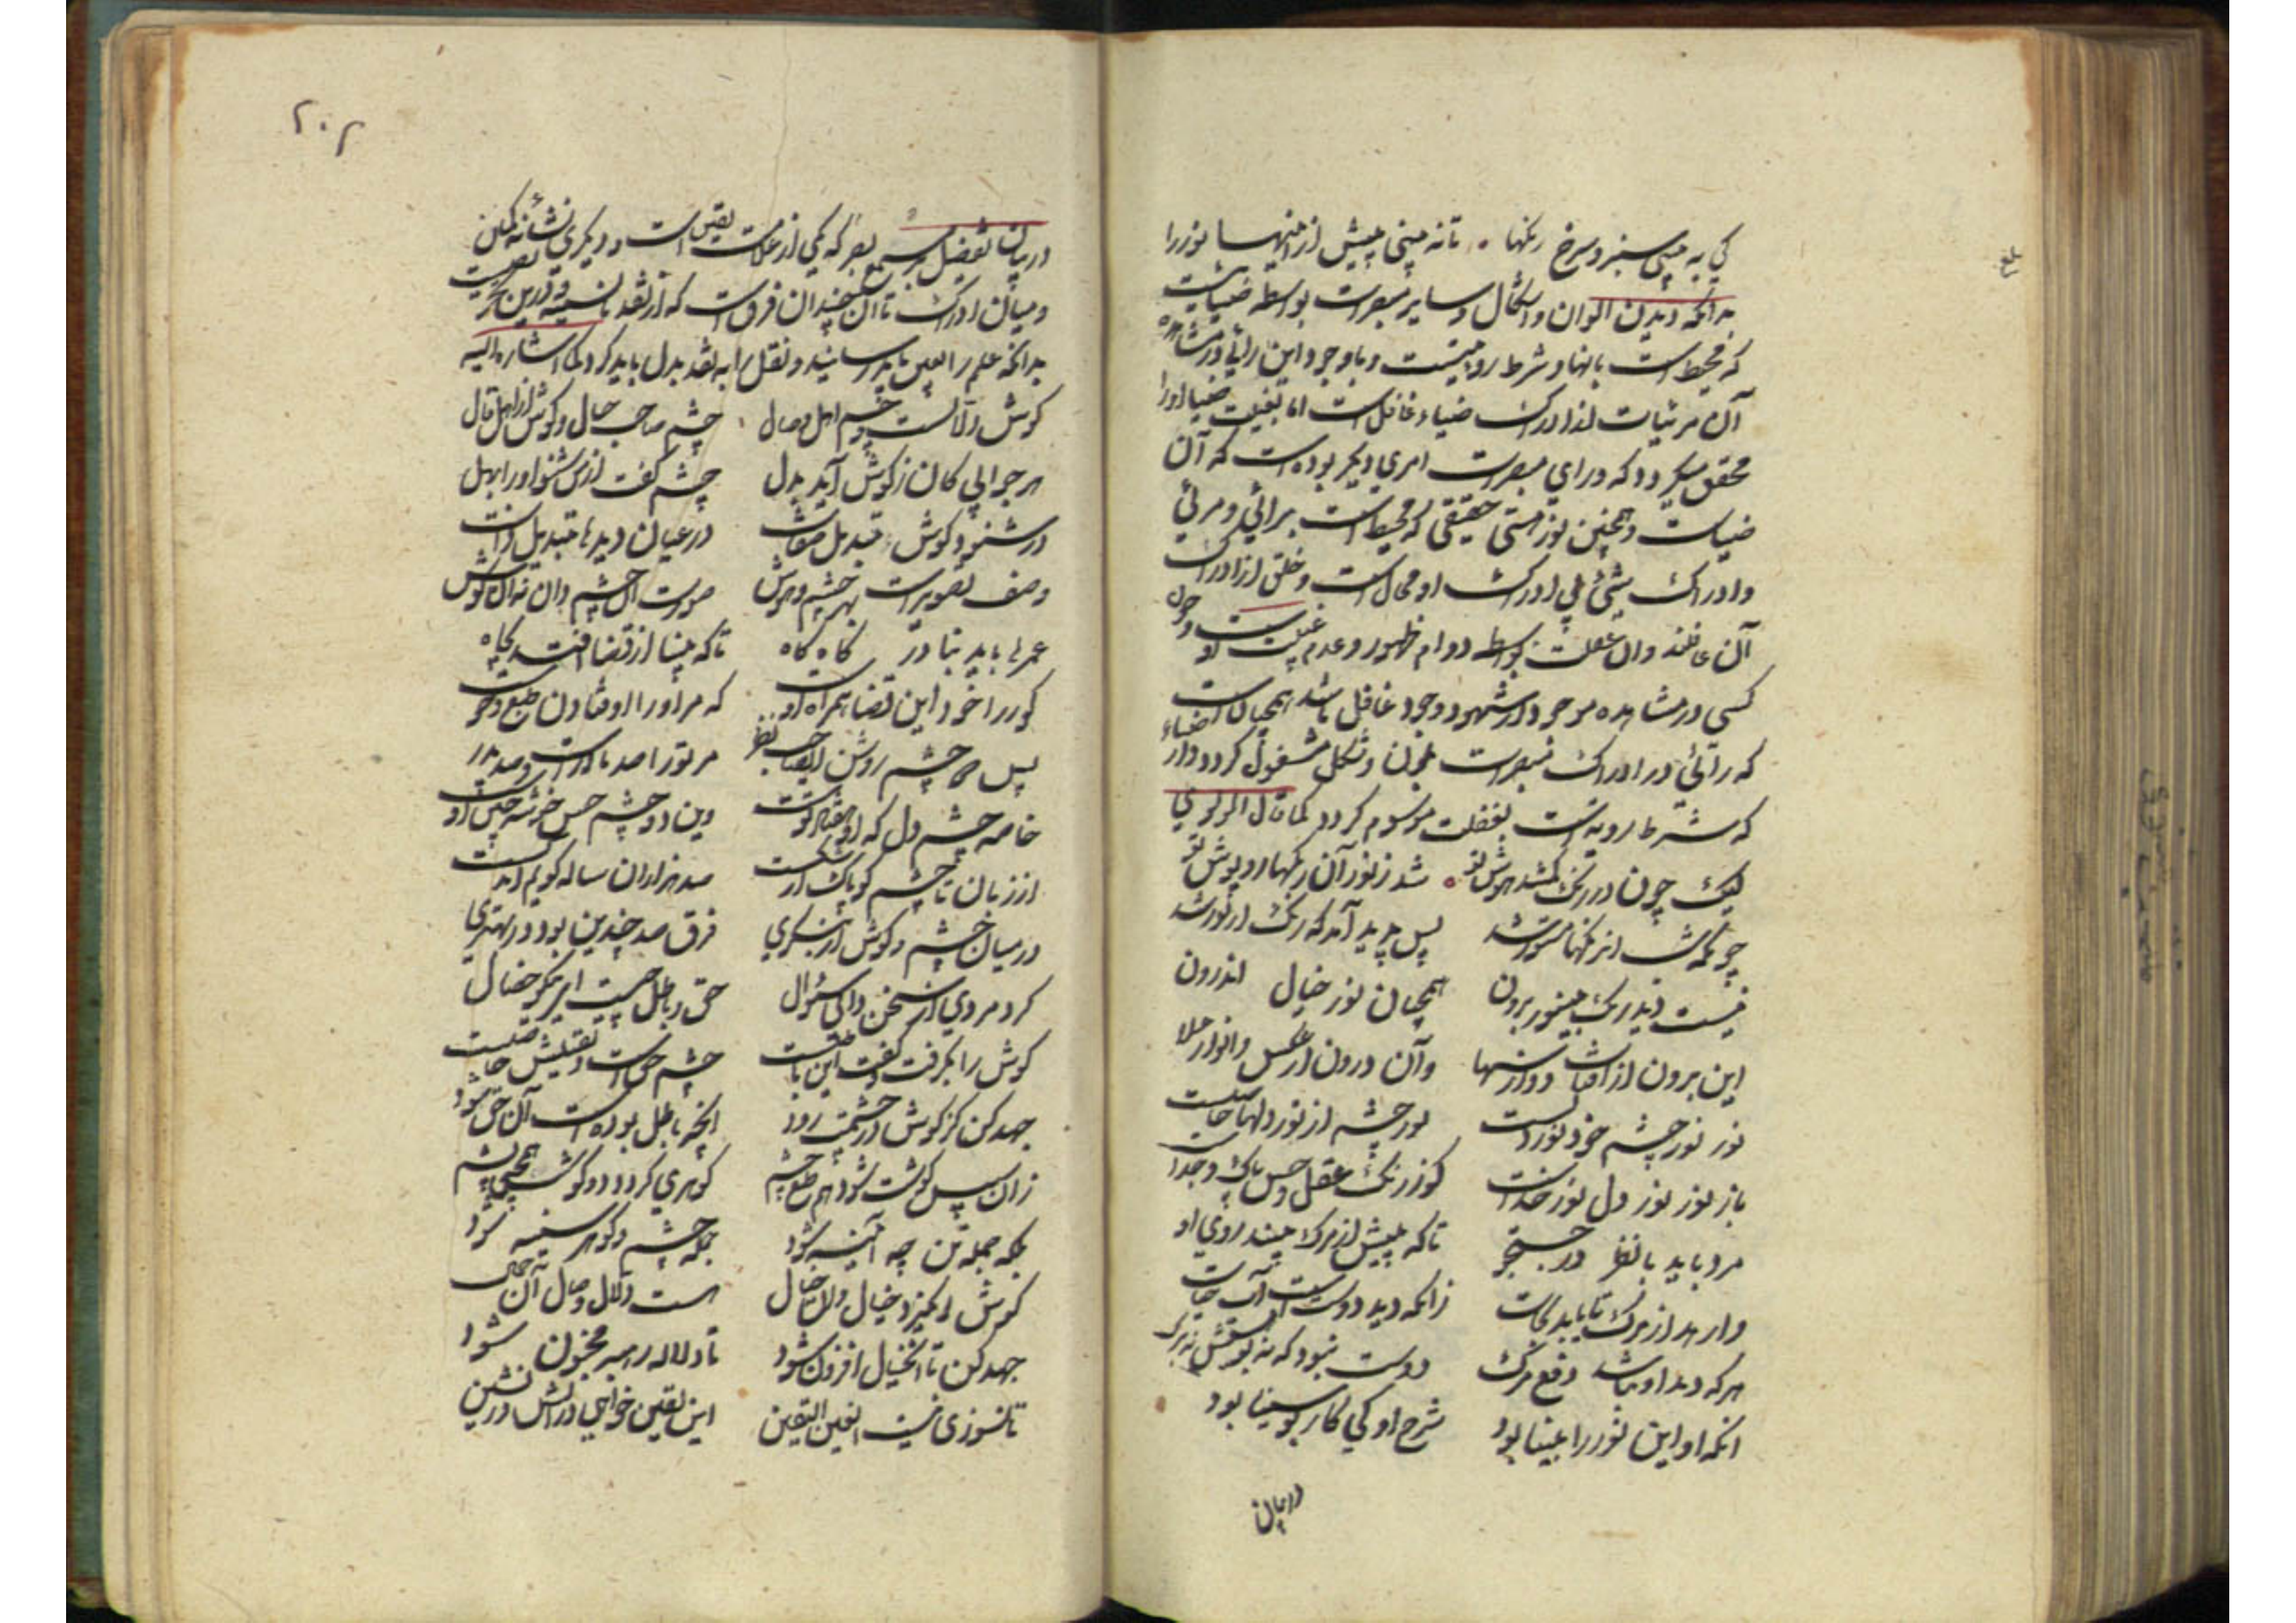 کی به بینی سبز و سرخ رنکها • تا نه بینی پیش از اینها نور را
بدانکه دیدن الوان و اشکال و سایر مبصرات بواسطه ضیایست
که محیط است بانها و شرط رویتست و با وجود این رائی در مشاهده
آن مرئیات از ادراک ضیاء غافل است اما بغیبت ضیا او را
محقق میکردد که ورای مبصرات امری دیکر بوده است که آن
ضیاست و همچنین نور هستی حقیقی که محیط است برائی و مرئی
و ادراک شیٔ بی ادراک او محال است و خلق از ادراک
آن غافلند و ان غفلت بواسطه دوام ظهور و عدم غیبت اوست و چون
کسی در مشاهده موجود از شهود وجود غافل باشد همچنانست
که رائی در ادراک مبصرات بلون و شکل مشغول کردد و از ضیاء
که شرط رویة است بغفلت موسوم کردد کما قال المولوی
لیک چون در رنک کم شد هوش تو • شد ز نور آن رنکها روپوش تو
چونکه شب ان رنکها مستور شد پس پدید آمد که رنک از نور شد
نیست دید رنک بی نور برون همچنان نور خیال اندرون
این برون از آفتاب و از سها و آن درون از عکس انوار علا
نور نور چشم خود نور دلست نور چشم از نور دلها حاصلست
باز نور نور دل نور خداست کو ز نور عقل و حس پاک و جداست
مرد باید با نظر در جستجو تا که پیش از مرک بیند روی او
وارهد از مرک تا یابد نجات زانکه دید دوست است آب حیات
هرکه دید او نباشد دفع مرک دوست نبود که نه بویش نه برک
انکه او این نور را بینا بود شرح او کی کار بوسینا بود
در بیان
۲۰۲
در بیان تفضیل بصر بر سمع که یکی از علامت یقین است و دیکری نشانهٔ کمان
و میان ادراک تا آن چندان فرقست که از نقد تا نسیه و درین نصیحت
بدانکه علم را بعین باید رسانید و نقل را به نقد بدل باید کرد کما اشار الیه
کوش دلالست و چشم اهل وصال • چشم صاحب حال و کوش از اهل قال
هر جوابی کان ز کوش آید بدل چشم کفت از من شنو او را بهل
در شنود کوش تبدیل صفات در عیان دیدها تبدیل ذات
وصف تصویرست بهر چشم و هوش صورت ان چشم دان نه ان کوش
عمرها باید بنادر کاه کاه تا که بینا از قضا افتد بچاه
کور را خود این قضا همراه اوست که مر او را اوفتادن طبع و خوست
پس دو چشم روشن ای صاحب نظر مر تو را صد مادرست و صد پدر
خاصه چشم دل که او هفتاد توست وین دو چشم حس خوشه چین اوست
از زبان تا چشم کو پاک از شکست صد هزاران ساله کویم اندکست
در میان چشم و کوش ار بنکری فرق صد چندین بود در بهتری
کرد مردی از سخن دانی سؤال حق و باطل چیست ای نیکو خصال
کوش را بکرفت و کفت این باطلست چشم حق است و یقینش حاصلست
جهد کن کز کوش در چشمت رود انچه باطل بوده است آن حق شود
زان سپس کوشت شود هم طبع چشم کوهری کردد دو کوش همچو یشم
بلکه جمله تن چه آئینه شود جمله چشم و کوهر سینه شود
کوش انکیزد خیال و ان خیال هست دلال وصال آن جمال
جهد کن تا این خیال افزون شود تا دلاله رهبر مجنون شود
تا نسوزی نیست این عین الیقین این یقین خواهی در آتش در نشین